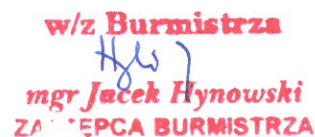 w/z Burmistrza
mgr Jacek Hynowski
BURMISTRZA